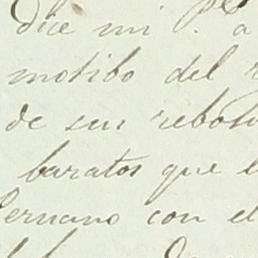 dice mi P. a
motibo del
de sus rebos
baratos que
ernano con el